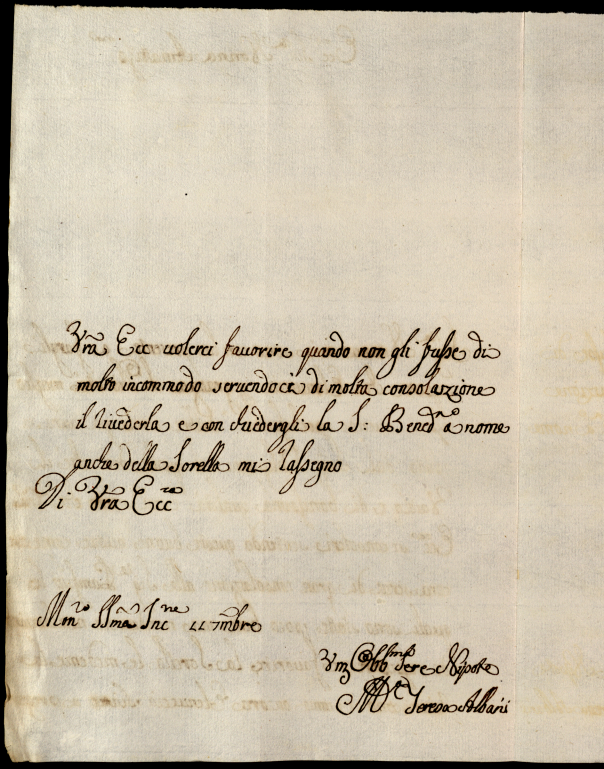 Vra Ecc uolerci fauorire quando non gli fusse di
molto incommodo seruendoci di molta consolazione
il riuederla e con chiedergli la S: Bened.ne a nome
anche della Sorella mi rassegno
Di Vra Ecc.za
Mon.ro SSma Inc.ne 11 7mbre
Vm Obb Sere Nipote
Teresa Albani